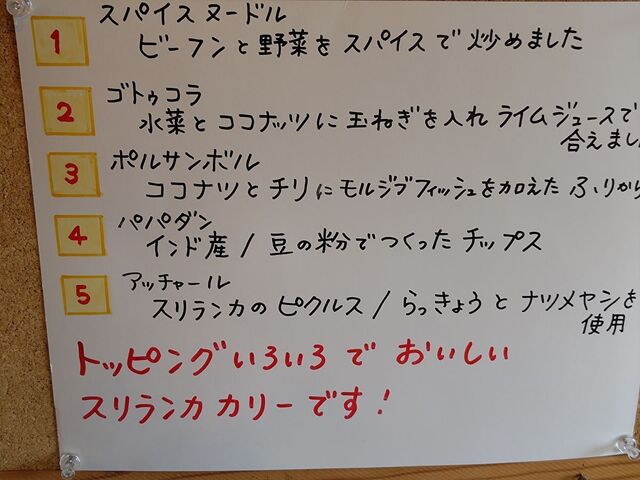 1 スパイス ヌードル
ビーフンと野菜をスパイスで炒めました
2 ゴトゥコラ
水菜とココナッツに玉ねぎを入れ ライムジュースで
合えました
3 ポルサンボル
ココナツとチリにモルジブフィッシュを加えた ふりか
4 パパダン
インド産/豆の粉でつくったチップス
5 アッチャール
スリランカのピクルス/らっきょうとナツメヤシを
使用
トッピングいろいろで おいしい
スリランカ カリーです!